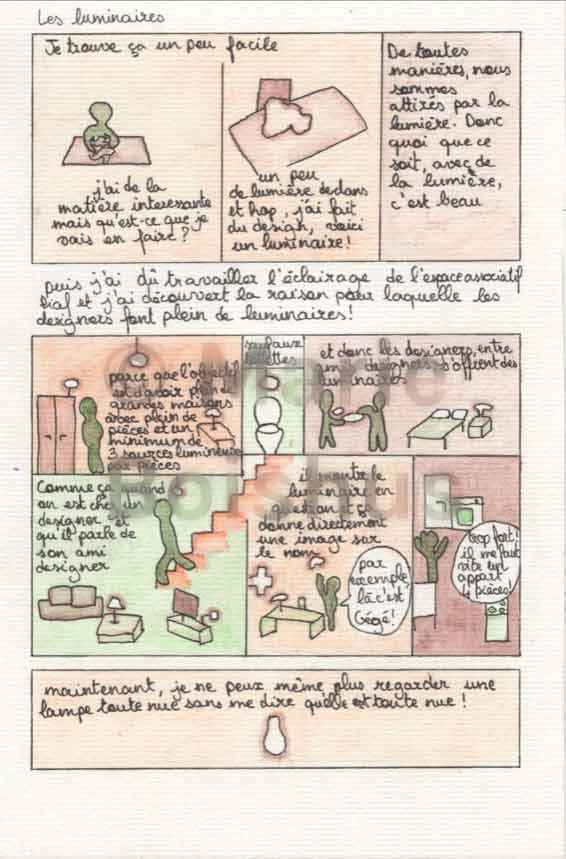 Les luminaires
Je trouve ça un peu facile
j'ai de la
matière interessante
mais qu'est-ce que je
vais en faire?
un peu
de lumière dedans
et hop, j'ai fait
du design, voici
un luminaire!
De toutes
manières, nous
sommes
attirés par la
lumière. Donc
quoi que ce
soit, avec de
la lumière,
c'est beau
puis j'ai dû travailler l'éclairage de l'espace associatif
et j'ai découvert la raison pour laquelle les
designers font plein de luminaires!
parce que l'objectif
est d'avoir plein de
grandes maisons
avec plein de
pièces et un
minimum de
3 sources lumineuse
par pièces
sauf aux
toilettes
et donc les designers, entre
designers s'offrent des
luminaires
Comme ça quand
on est chez un
designer et
qu'il parle de
son ami
designer
il montre le
luminaire en
question et ça
donne directement
une image sur
le nom
par
exemple,
là c'est
Gégé!
trop fort!
il me faut
vite un
appart
4 pièces!
maintenant, je ne peux même plus regarder une
lampe toute nue sans me dire qu'elle est toute nue!
© Marie